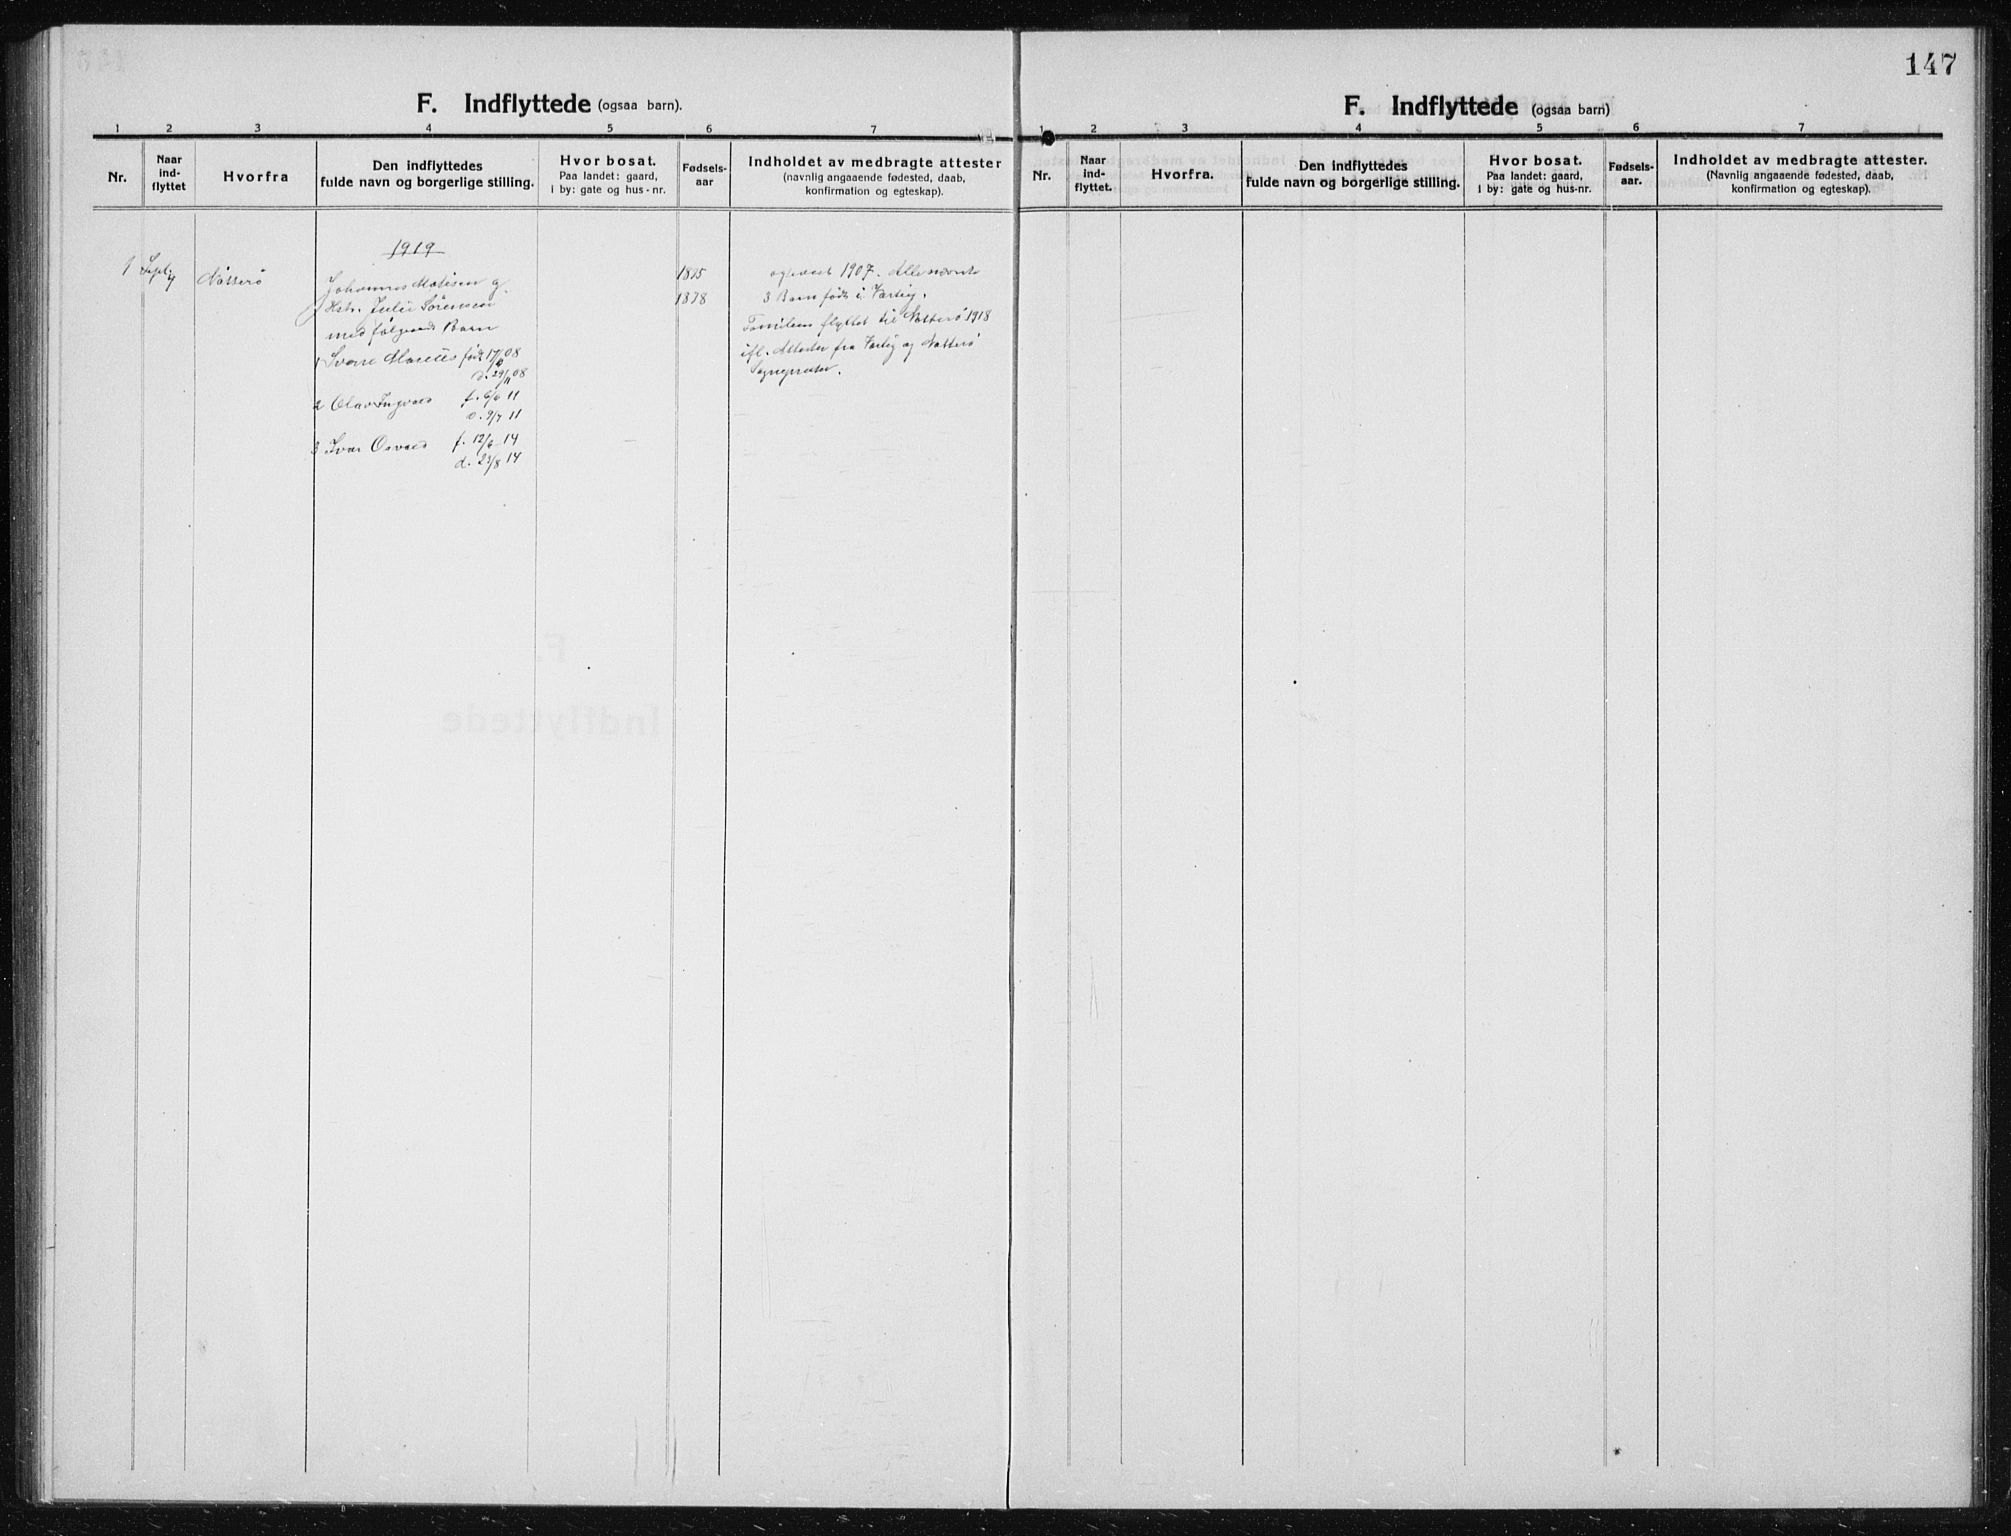 147
F. Indflyttede (ogsaa barn).
1 2 3 4 5 6 7
Nr.
Naar ind-flyttet
Hvorfra
Den indflyttedes fulde navn og borgerlige stilling.
Hvor bosat. Paa landet: gaard, i by: gate og hus-nr.
Fødsels-aar
Indholdet av medbragte attester (navnlig angaaende fødested, daab, konfirmation og egteskap).
1919
1 Septbr Nötterö
Johannes Matisen og
Hstr. Julie Sörensen
med følgende Barn
1 Sverre Marelius født 17/ 08
d. 29/11 08
2 Olav Ingvald f. 6/6 11
d. 9/7 11
3 Ivar Osvald f. 12/6 14
d. 23/8 14
1878
1907. Allenevnte
3 Barn födt i
Familien flyttet til Nötterö 1918
ifl. Attester fra og Nötterö
Sogneprester.
F. Indflyttede (ogsaa barn)
1 2 3 4 5 6 7
Nr.
Naar ind-flyttet.
Hvorfra.
Den indflyttedes fulde navn og borgerlige stilling.
Hvor bosat. Paa landet: gaard, i by: gate og hus-nr.
Fødsels-aar.
Indholdet av medbragte attester. (Navnlig angaaende fødested, daab, konfirmation og egteskap).